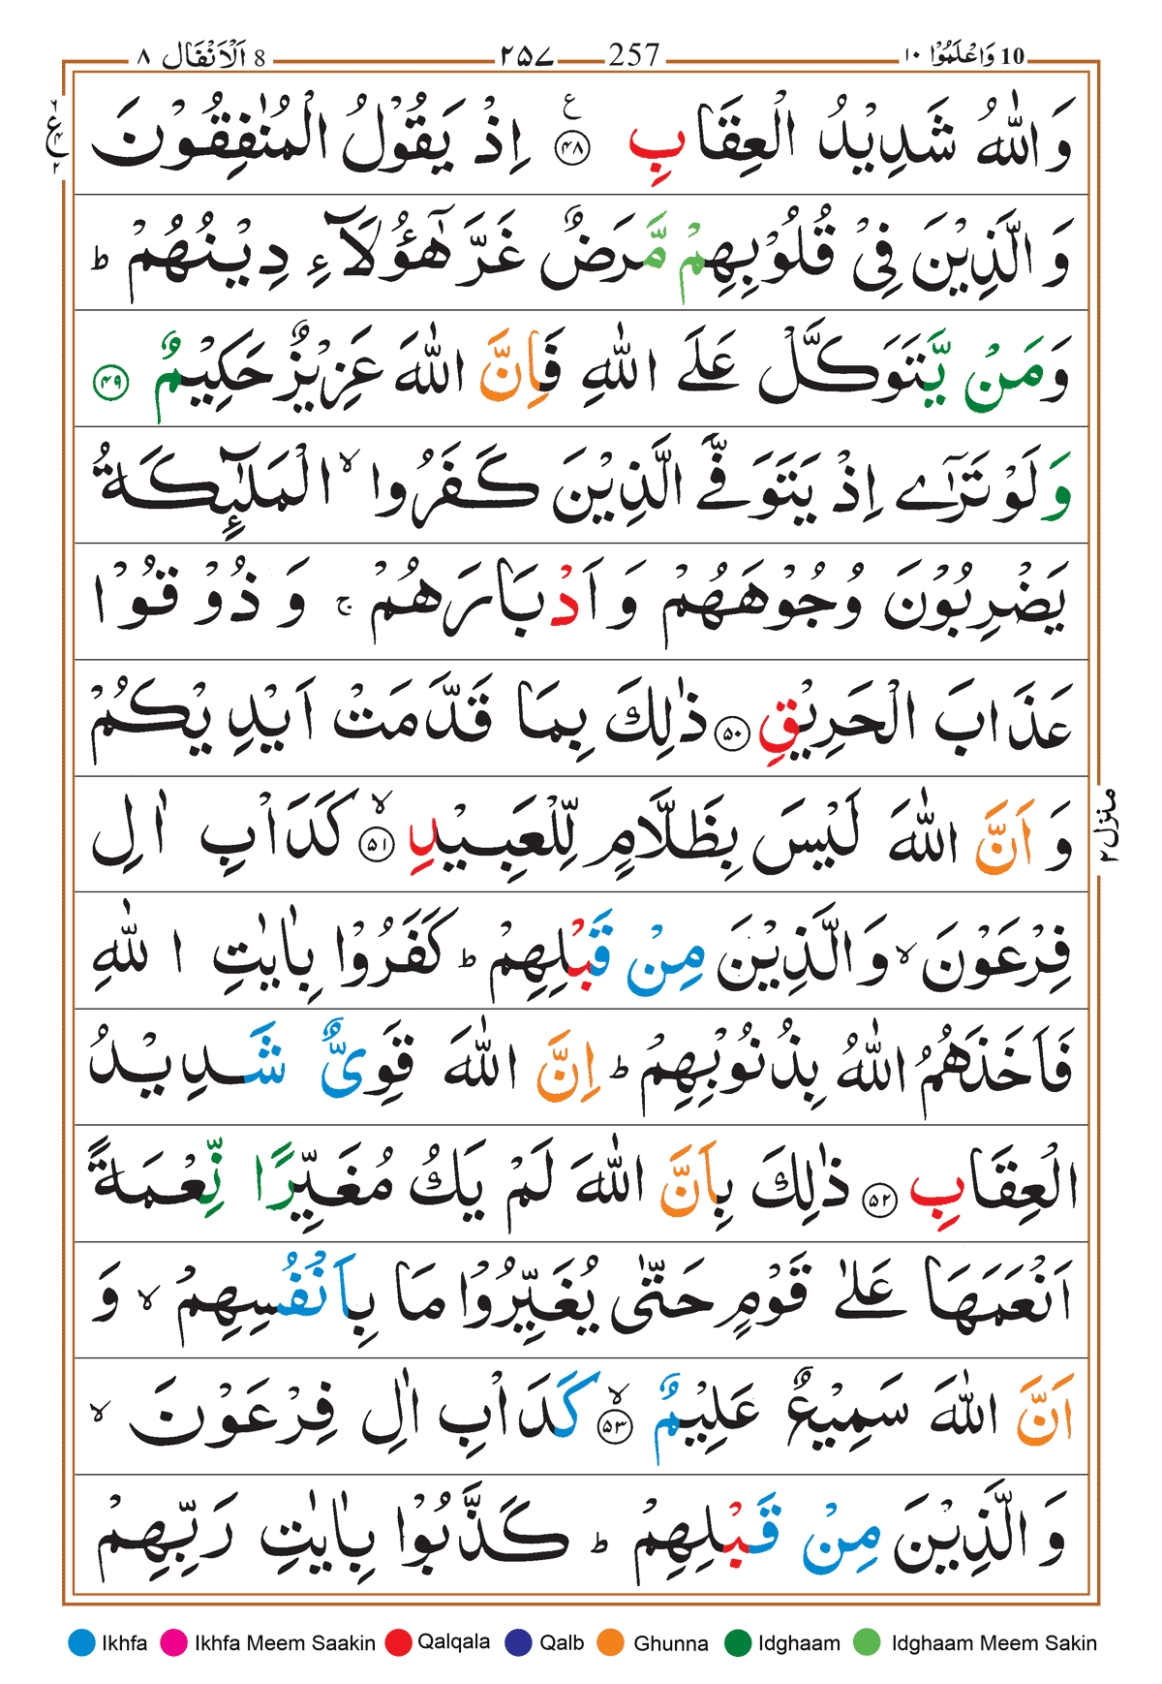 10 وَاعْلَمُوْا ١٠ 257 ٢٥٧ 8 اَلْاَنْفَال ٨
وَاللّٰهُ شَدِيْدُ الْعِقَابِ ۧ ﴿۴۸﴾ اِذْ يَقُوْلُ الْمُنٰفِقُوْنَ
وَالَّذِيْنَ فِىْ قُلُوْبِهِمْ مَّرَضٌ غَرَّ هٰٓؤُلَآءِ دِيْنُهُمْ ؕ
وَمَنْ يَّتَوَكَّلْ عَلَى اللّٰهِ فَاِنَّ اللّٰهَ عَزِيْزٌ حَكِيْمٌ ﴿۴۹﴾
وَلَوْ تَرٰٓى اِذْ يَتَوَفَّى الَّذِيْنَ كَفَرُوا ۙ الْمَلٰٓٮِٕكَةُ
يَضْرِبُوْنَ وُجُوْهَهُمْ وَاَدْبَارَهُمْ ۚ وَذُوْقُوْا
عَذَابَ الْحَرِيْقِ ﴿۵۰﴾ ذٰلِكَ بِمَا قَدَّمَتْ اَيْدِيْكُمْ
وَاَنَّ اللّٰهَ لَيْسَ بِظَلَّامٍ لِّلْعَبِيْدِ ۙ ﴿۵۱﴾ كَدَاْبِ اٰلِ
فِرْعَوْنَ ۙ وَالَّذِيْنَ مِنْ قَبْلِهِمْ ؕ كَفَرُوْا بِاٰيٰتِ اللّٰهِ
فَاَخَذَهُمُ اللّٰهُ بِذُنُوْبِهِمْ ؕ اِنَّ اللّٰهَ قَوِىٌّ شَدِيْدُ
الْعِقَابِ ﴿۵۲﴾ ذٰلِكَ بِاَنَّ اللّٰهَ لَمْ يَكُ مُغَيِّرًا نِّعْمَةً
اَنْعَمَهَا عَلٰى قَوْمٍ حَتّٰى يُغَيِّرُوْا مَا بِاَنْفُسِهِمْ ۙ وَ
اَنَّ اللّٰهَ سَمِيْعٌ عَلِيْمٌ ۙ ﴿۵۳﴾ كَدَاْبِ اٰلِ فِرْعَوْنَ ۙ
وَالَّذِيْنَ مِنْ قَبْلِهِمْ ؕ كَذَّبُوْا بِاٰيٰتِ رَبِّهِمْ
منزل ٢
Ikhfa Ikhfa Meem Saakin Qalqala Qalb Ghunna Idghaam Idghaam Meem Sakin